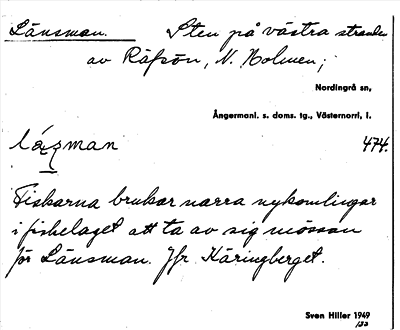 Länsman. Sten på västra stranden
av Räfsön, N. Holmen;
Nordingrå sn,
Ångermanl. s. doms. tg., Västernorrl. l.
474.
Fiskarna brukar narra nykomlingar
i fiskelaget att ta av sig mössan
för Länsman. Jfr Käringberget.
Sven Hiller 1949